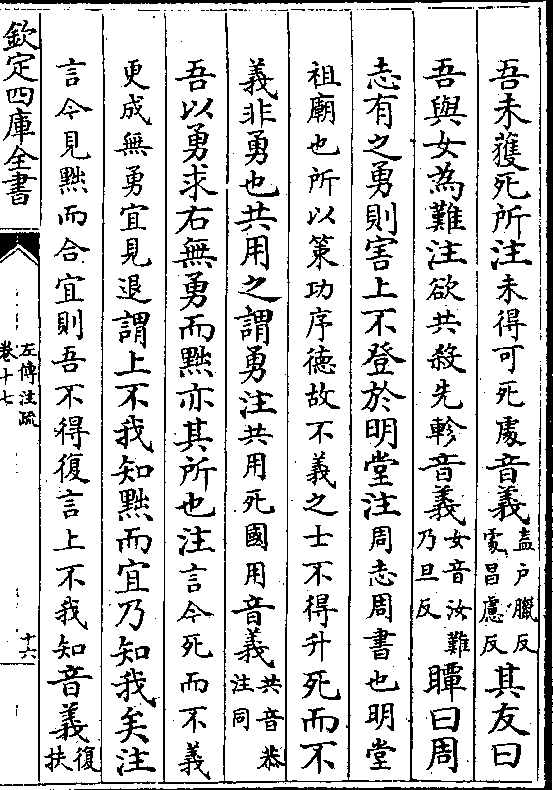 吾未獲死所注未得可死處音義盍户臘反處昌慮反其友曰
吾與女為難注欲共殺先軫音義女音汝難乃旦反瞫曰周
志有之勇則害上不登於明堂注周志周書也明堂
祖廟也所以策功序德故不義之士不得升死而不
義非勇也共用之謂勇注共用死國用音義共音恭注同
吾以勇求右無勇而黜亦其所也注言今死而不義
更成無勇宜見退謂上不我知黜而宜乃知我矣注
言今見黜而合宜則吾不得復言上不我知音義復扶
欽定四庫全書
左傳注疏
卷十七
十六